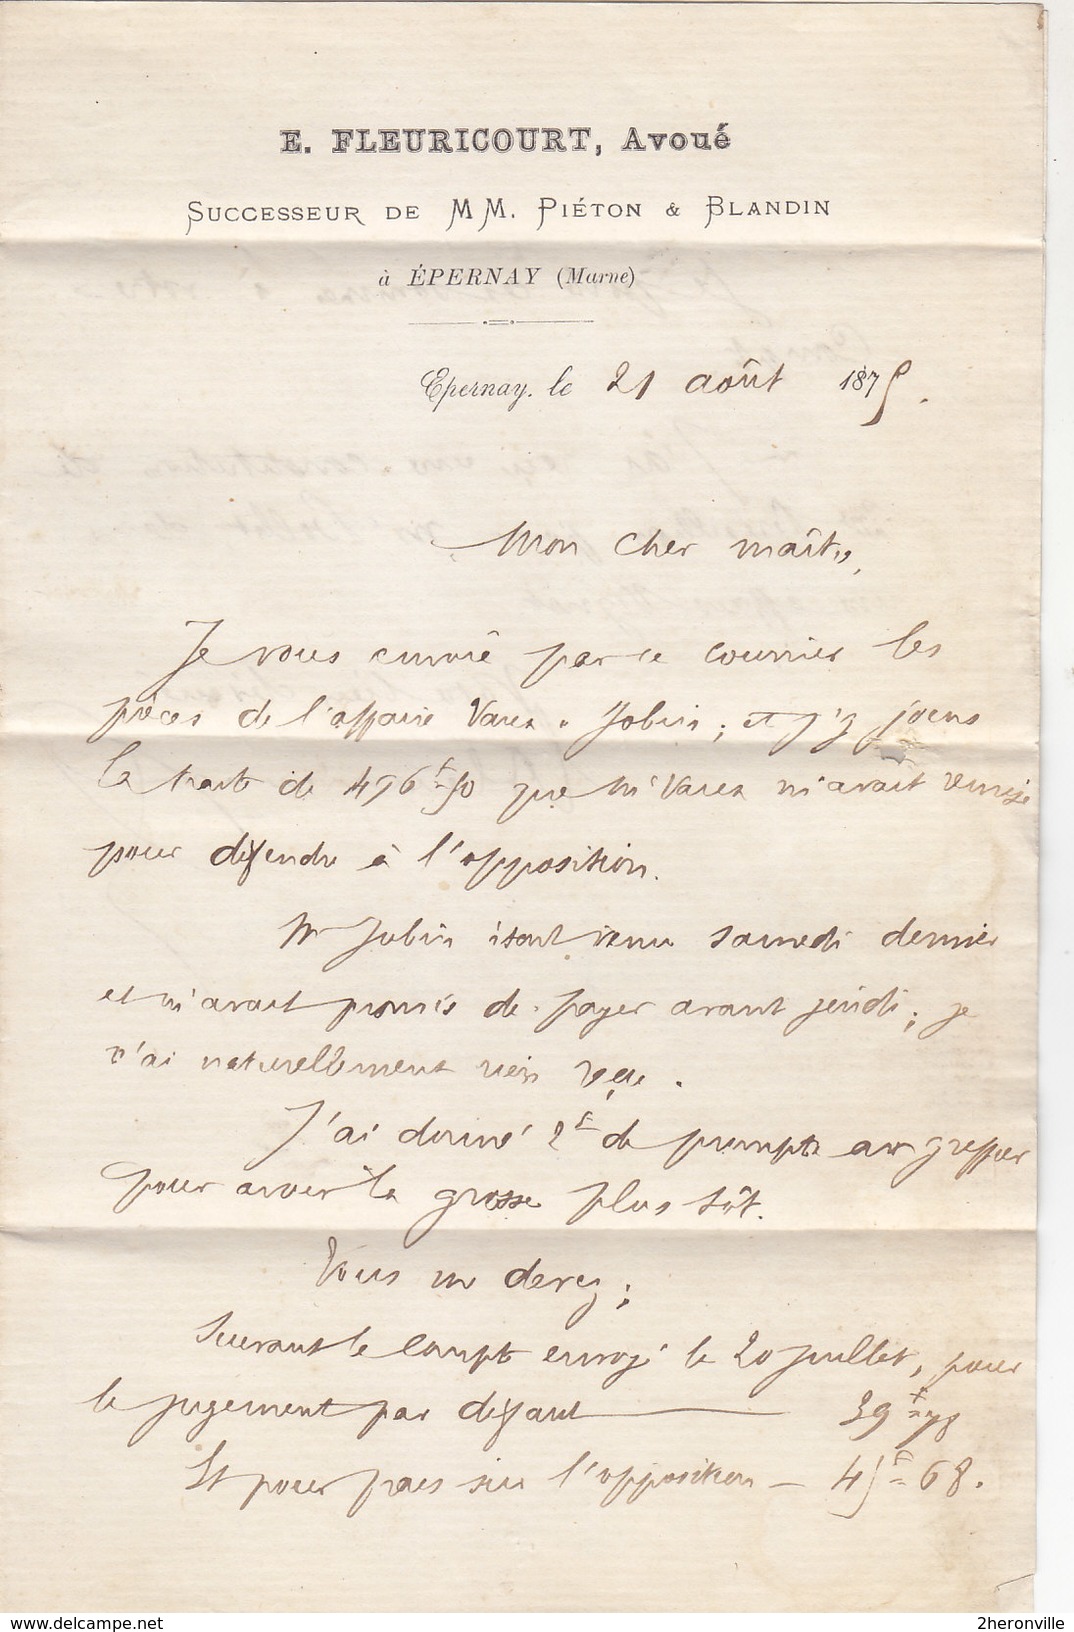 E. FLEURICOURT, Avoué
SUCCESSEUR DE MM. PIÉTON & BLANDIN
à ÉPERNAY (Marne)
Epernay, le 21 août 1875.
Mon cher maître,
Je vous envoie par ce courrier les
pièces de l'affaire Varez Jobin ; et j'y joins
la traite de 496f 50 que Mr Varez m'avait remise
pour défendre à l'opposition.
Mr Jobin était venu samedi dernier
et m'avait promis de payer avant jeudi ; je
n'ai naturellement rien reçu.
J'ai donné 2f de prompte au greffier
pour avoir la grosse plus tôt.
Vous me devez ;
Suivant le compte envoyé le 20 juillet, pour
le jugement par défaut 39f 78
Et pour frais sur l'opposition — 45f 68.
www.delcampe.net
2heronville